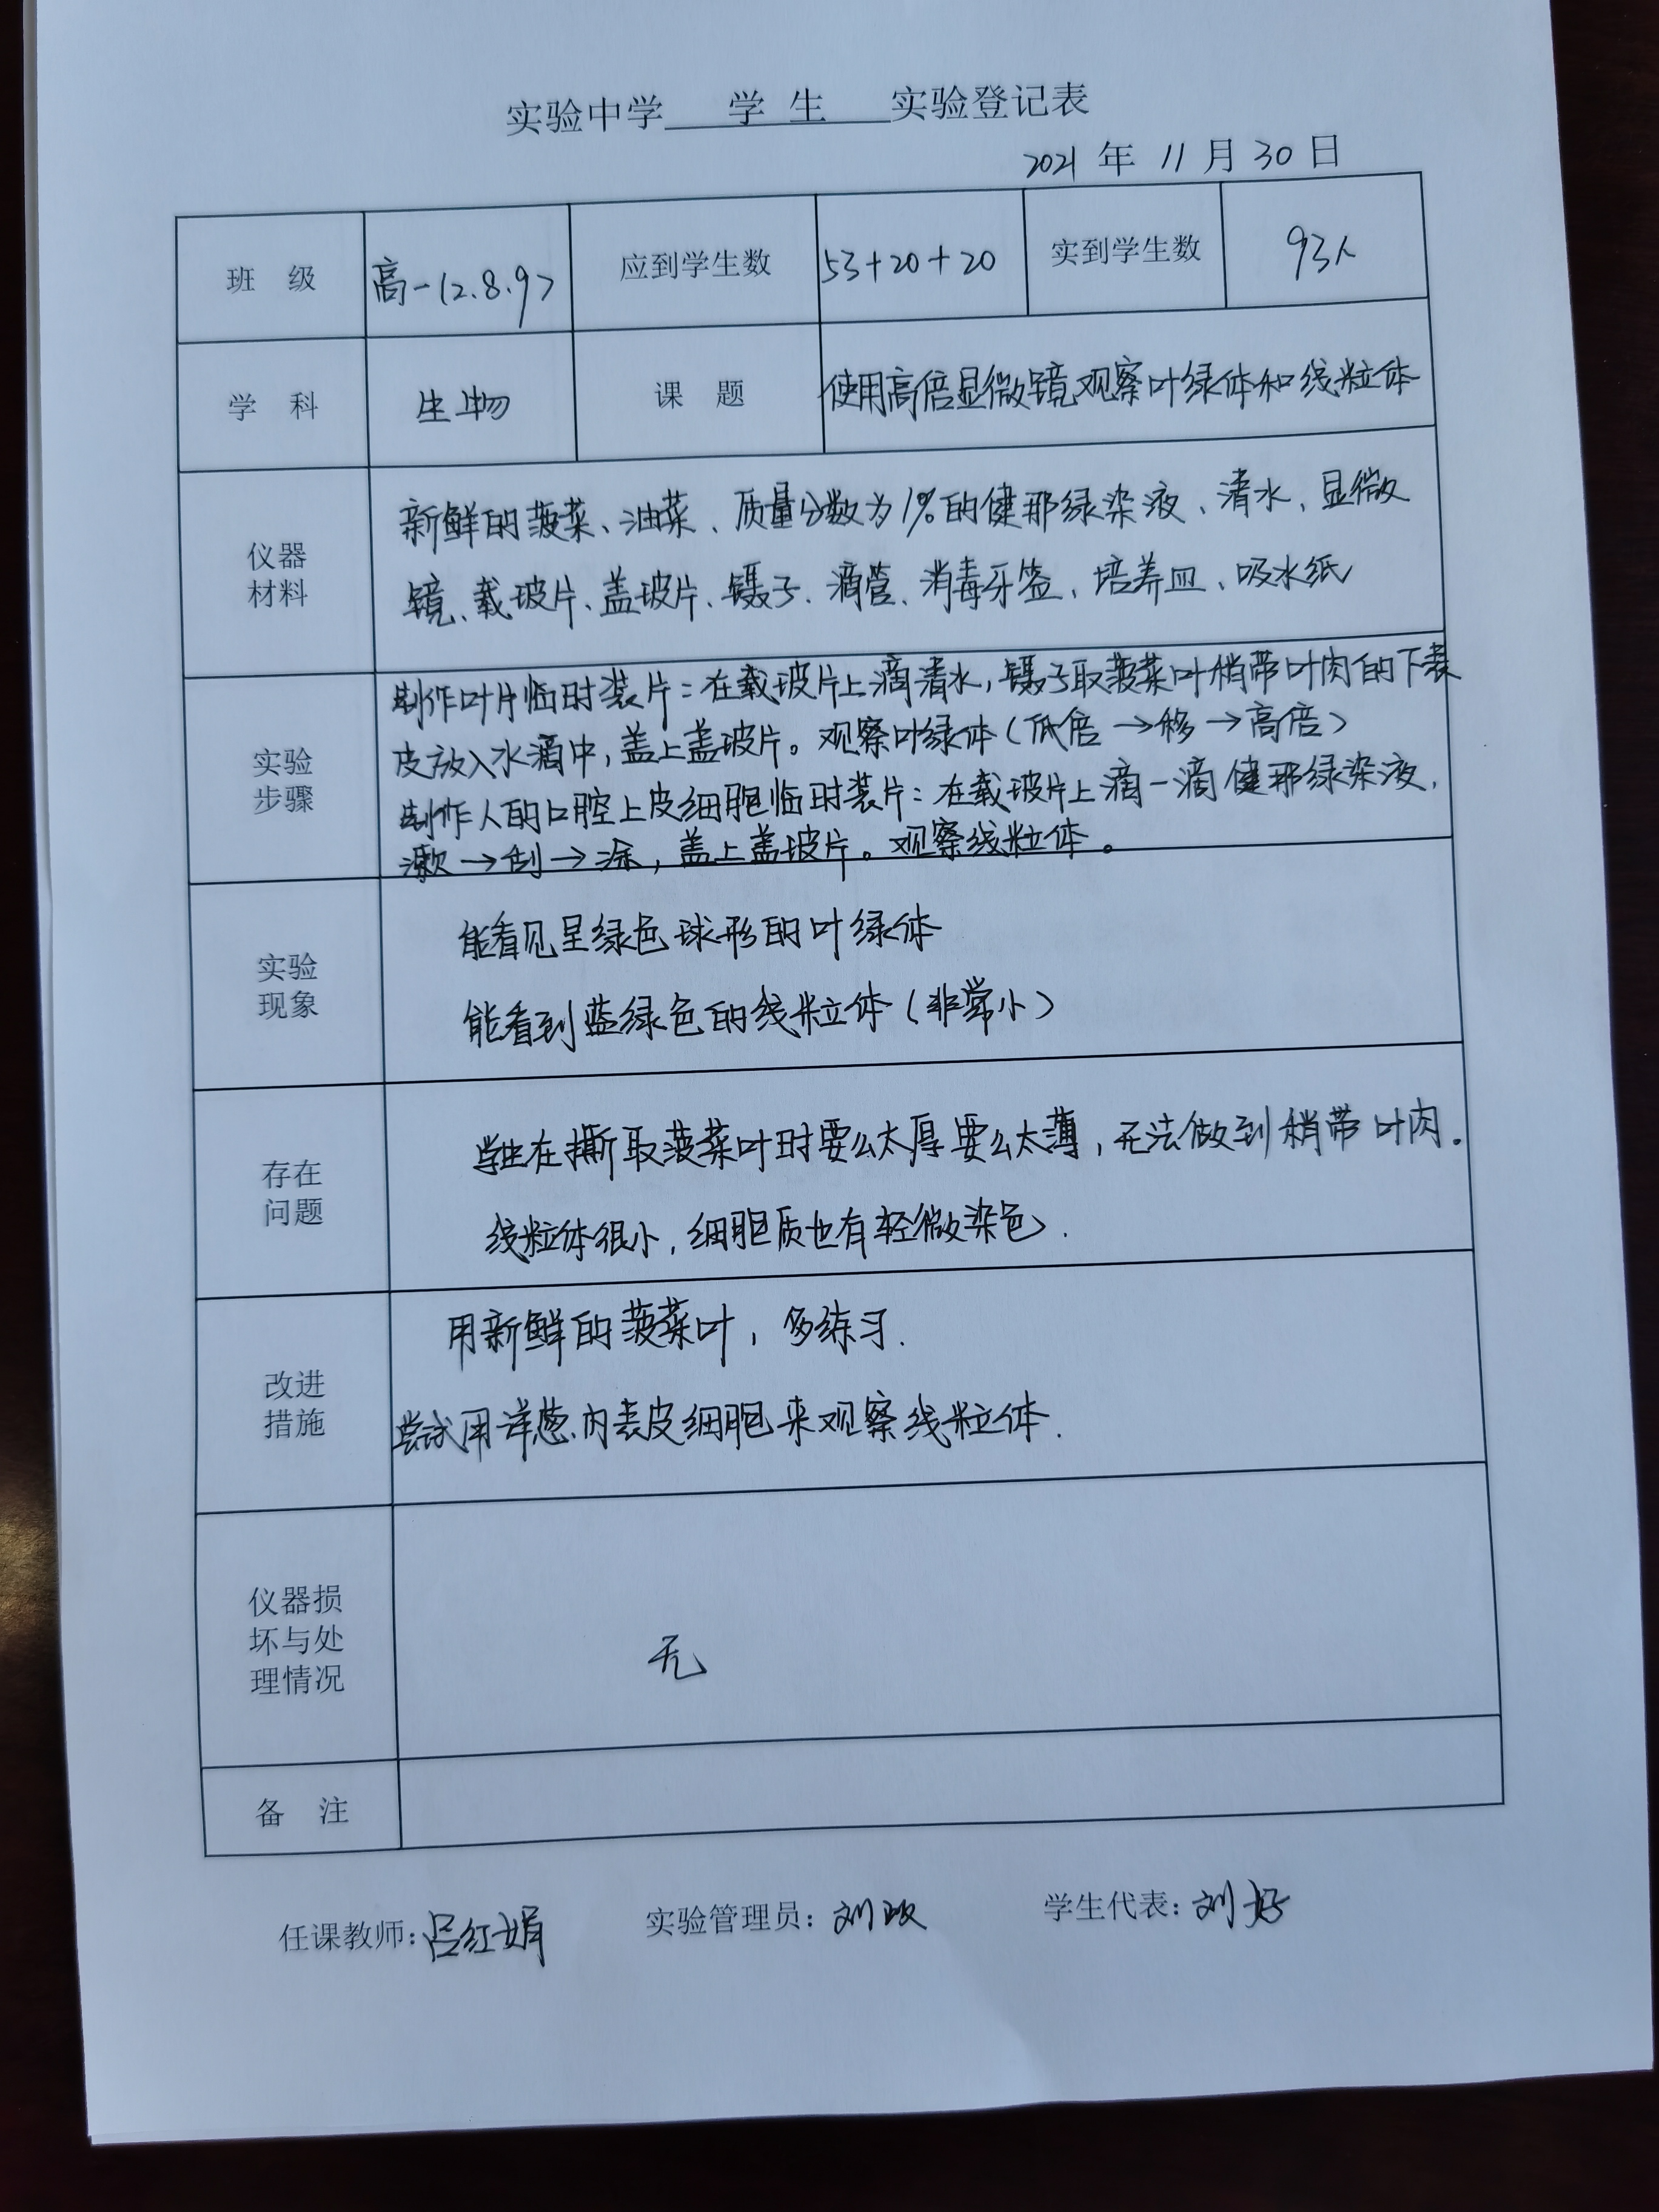 实验中学 学 生 实验登记表
2021 年 11 月 30 日
班 级 高一(2.8.9) 应到学生数 53+20+20 实到学生数 93人
学 科 生物 课 题 使用高倍显微镜观察叶绿体和线粒体
仪器
材料
新鲜的菠菜、油菜、质量分数为1%的健那绿染液、清水、显微
镜、载玻片、盖玻片、镊子、滴管、消毒牙签、培养皿、吸水纸
实验
步骤
制作叶片临时装片：在载玻片上滴清水，镊子取菠菜叶稍带叶肉的下表
皮放入水滴中，盖上盖玻片。观察叶绿体（低倍→移→高倍）
制作人的口腔上皮细胞临时装片：在载玻片上滴一滴健那绿染液，
漱→刮→涂，盖上盖玻片。观察线粒体。
实验
现象
能看见呈绿色球形的叶绿体
能看到蓝绿色的线粒体（非常小）
存在
问题
学生在撕取菠菜叶时要么太厚要么太薄，无法做到稍带叶肉.
线粒体很小，细胞质也有轻微染色.
改进
措施
用新鲜的菠菜叶，多练习.
尝试用洋葱内表皮细胞来观察线粒体.
仪器损
坏与处
理情况
无
备 注
任课教师：吕红娟 实验管理员：刘政 学生代表：刘好